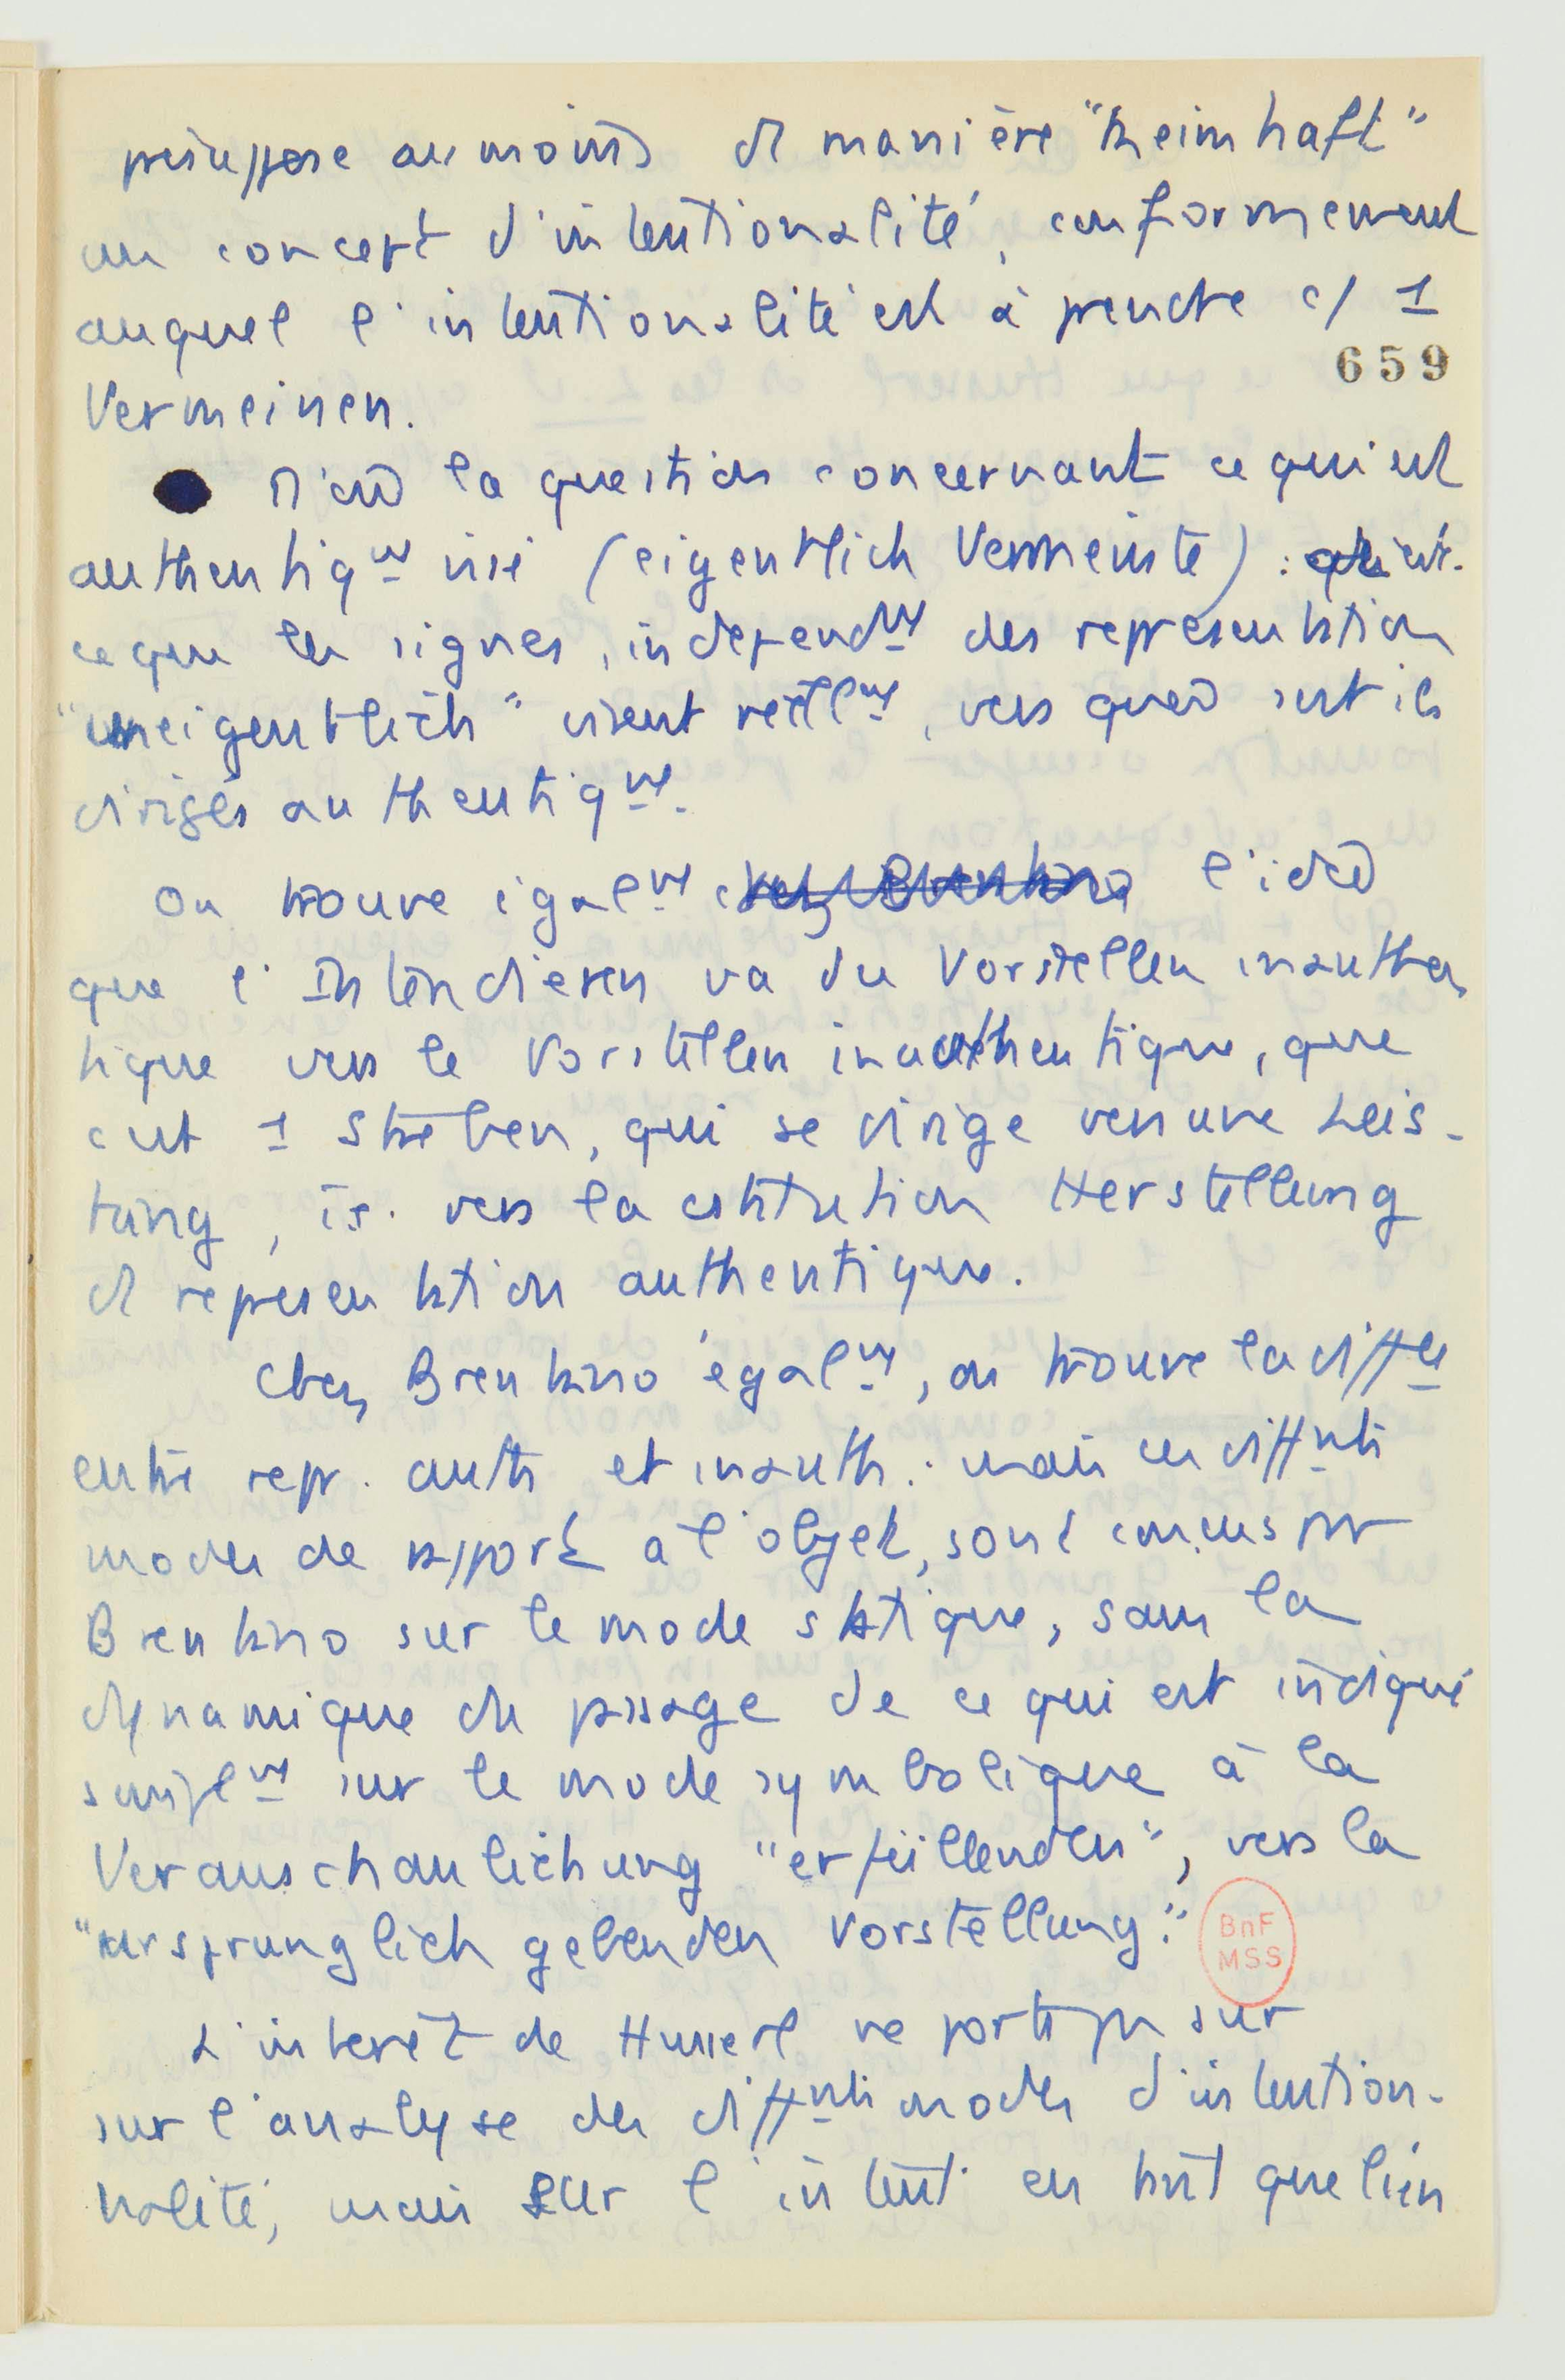 présuppose au moins de manière "keimhaft"
un concept d'intentionalité, conformement
auquel l'intentionalité est à prendre c/ 1
659
Vermeinen.
D'où la question concernant ce qui est
authentiqnt visé (eigentlich Vermeinte) : qu'est-
ce que les signes, independnt des representation
"uneigentlich" visent réellnt, vers quoi sont ils
dirigés authentiqnt.
On trouve égalnt chez Brentano l'idée
que l'Intendieren va du Vorstellen inauthen
tique vers le Vorstellen inauthentique, que
c'est 1 Streben, qui se dirige vers une Leis-
tung, vers la Herstellung
de representation authentique.
Chez Brentano égalnt, on trouve la diffce
entre repr. auth et inauth. mais ces diffnts
modes de rapport à l'objet, sont concus par
Brentano sur le mode statique, sans la
dynamique du passage de ce qui est indiqué
simplnt sur le mode symbolique à la
Veranschaulichung "erfüllenden", vers la
"ursprunglich gebenden Vorstellung".
BnF
MSS
L'interêt de Husserl ne porte pas sur
sur l'analyse des diffnts modes d'intention-
nalité, mais sur l'intent. en tant que lien